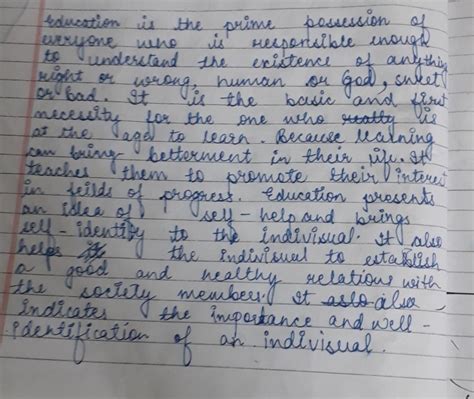 Education is the prime possession of
everyone who is responsible enough
to understand the existence of anything
right or wrong, human or God, sweet
or bad. It is the basic and first
necessity for the one who really is
at the age to learn. Because learning
can bring betterment in their life. It
teaches them to promote their interest
in feilds of progress. Education presents
an idea of self-help and brings
self-identity to the indivisual. It also
helps it the indivisual to establish
a good and healthy relations with
the society members. It aslo also
indicates the importance and well-
identification of an indivisual.